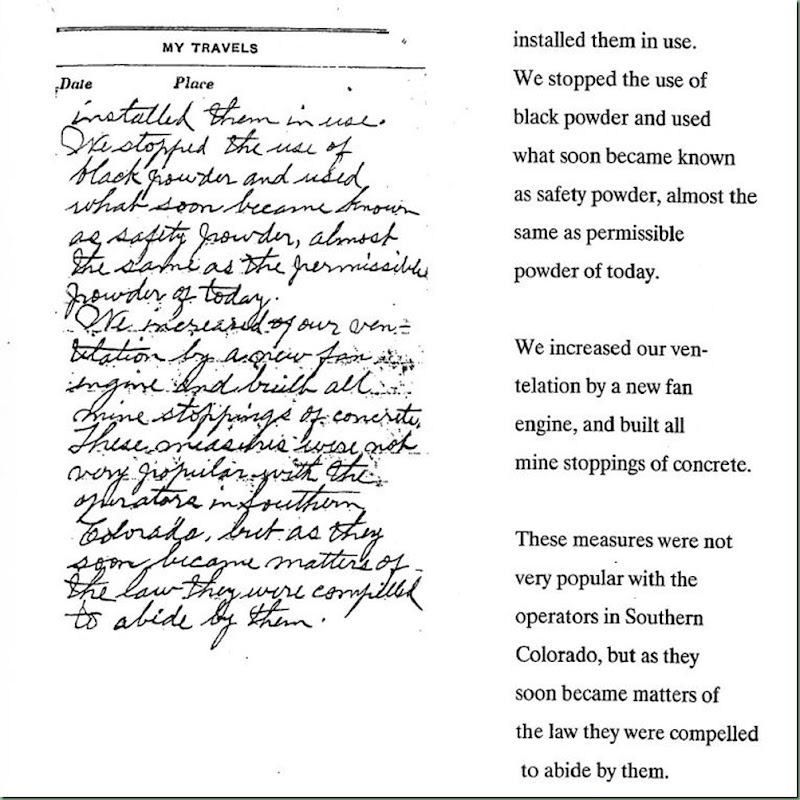 MY TRAVELS
Date Place
installed them in use.
We stopped the use of
black powder and used
what soon became known
as safety powder, almost
the same as the permissible
powder of today.
We increased of our ven-
telation by a new fan
engine and built all
mine stoppings of concrete.
These measures were not
very popular with the
operators in Southern
Colorado, but as they
soon became matters of
the law they were compelled
to abide by them.
installed them in use.
We stopped the use of
black powder and used
what soon became known
as safety powder, almost the
same as permissible
powder of today.
We increased our ven-
telation by a new fan
engine, and built all
mine stoppings of concrete.
These measures were not
very popular with the
operators in Southern
Colorado, but as they
soon became matters of
the law they were compelled
to abide by them.